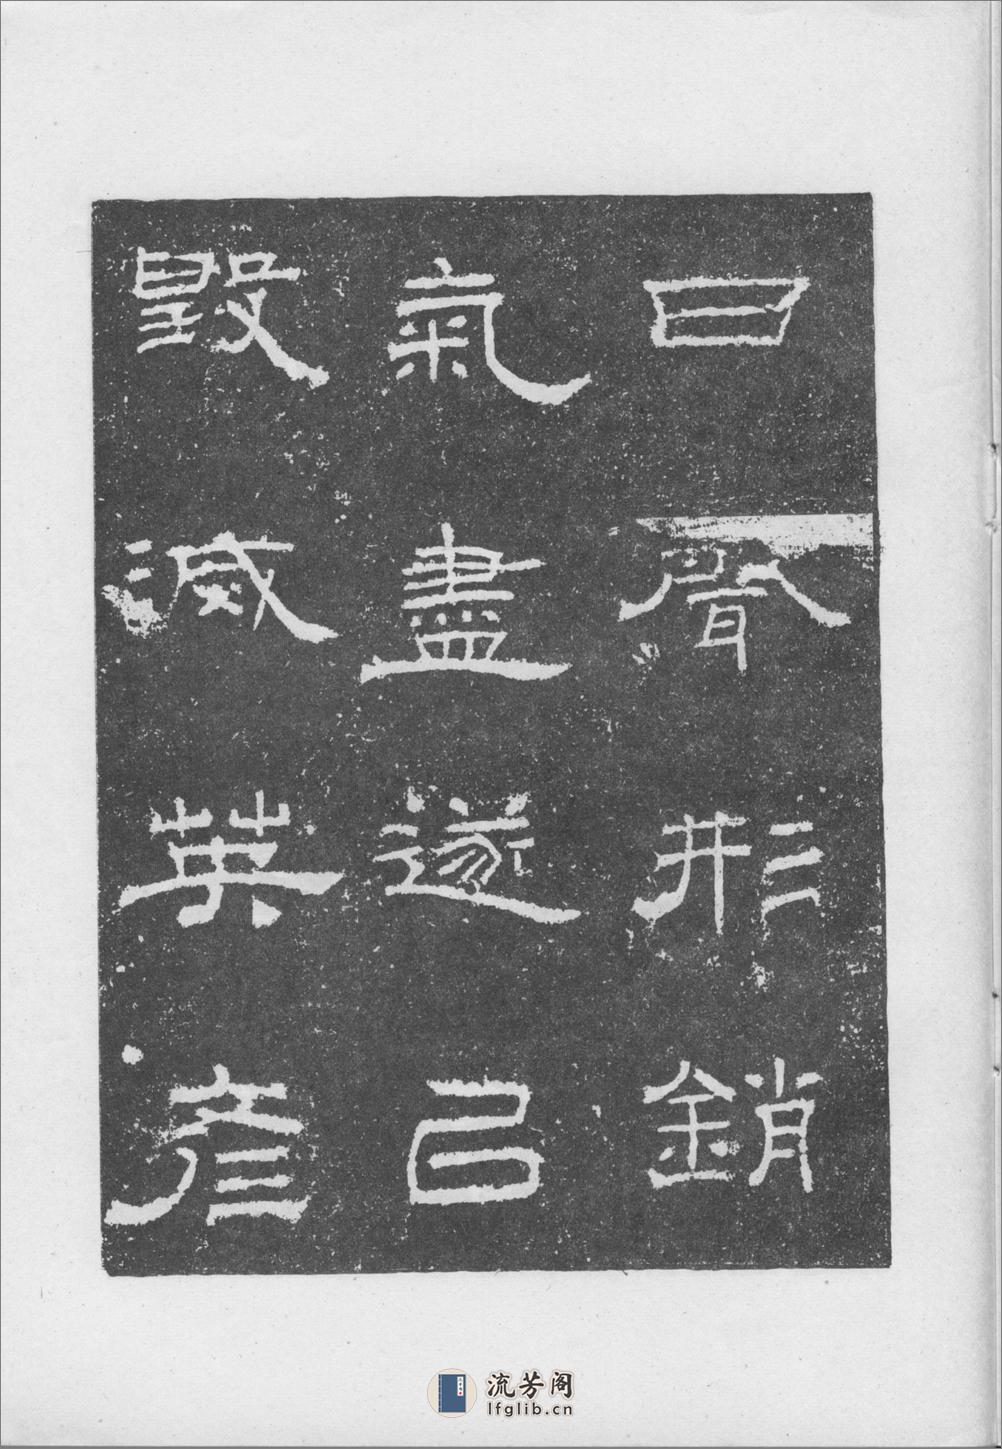 日脊形銷
氣盡遂㠯
毀滅英彥
流芳阁
lfglib.cn